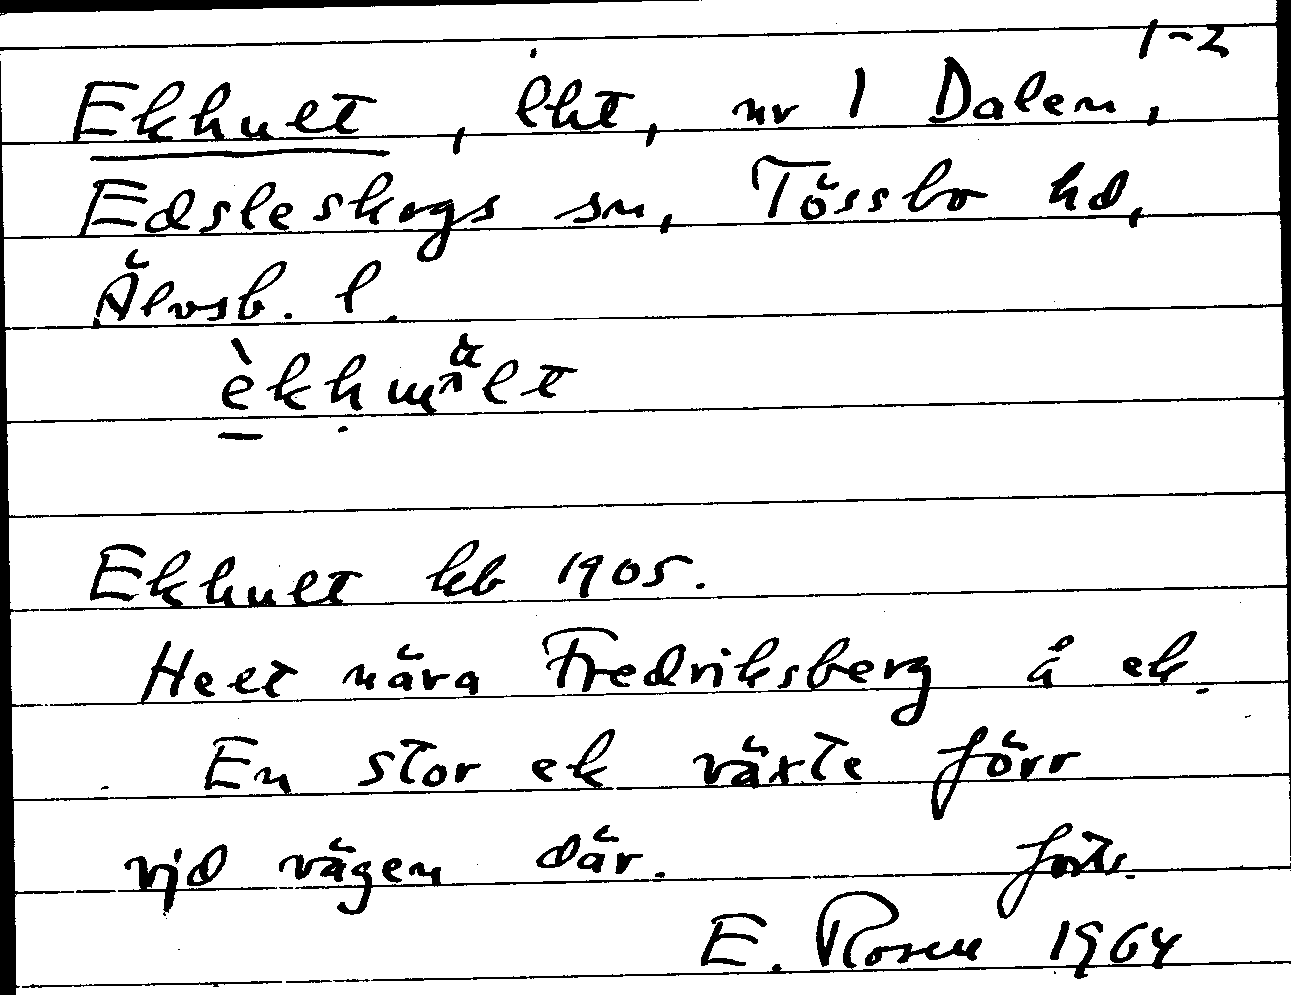 1-2
Ekhult, lht, nr 1 Dalen,
Edsleskogs sn, Tössbo hd,
Älvsb. l.
Ekhult kb 1905.
Helt nära Fredriksberg å ek.
En stor ek växte förr
vid vägen där. forts.
E. Rosen 1964